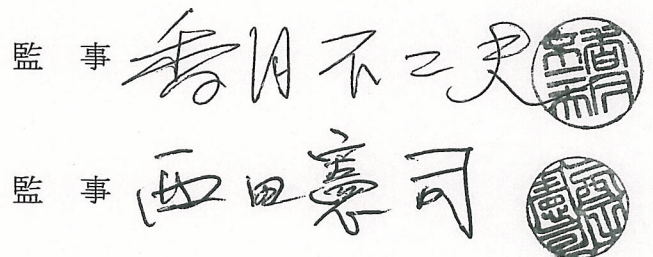 監 事 香月不二夫
監 事 西田憲司